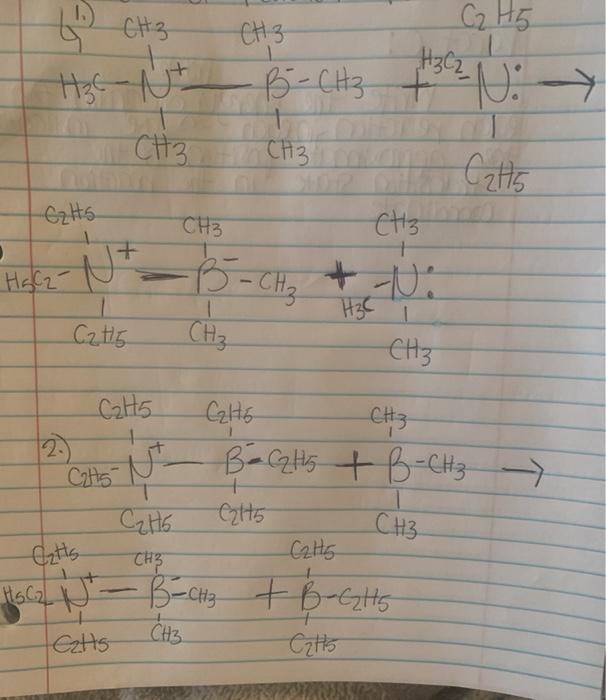 1.) CH3 CH3 C2H5
H3C - N+ — B- - CH3 + H3C2 - N: →
CH3 CH3 C2H5
C2H5 CH3 CH3
H5C2 - N+ — B- - CH3 + H3C - N:
C2H5 CH3 CH3
C2H5 C2H5 CH3
2.) C2H5 - N+ — B- - C2H5 + B - CH3 →
C2H5 C2H5 CH3
C2H5 CH3 C2H5
H5C2 N+ — B- - CH3 + B - C2H5
C2H5 CH3 C2H5